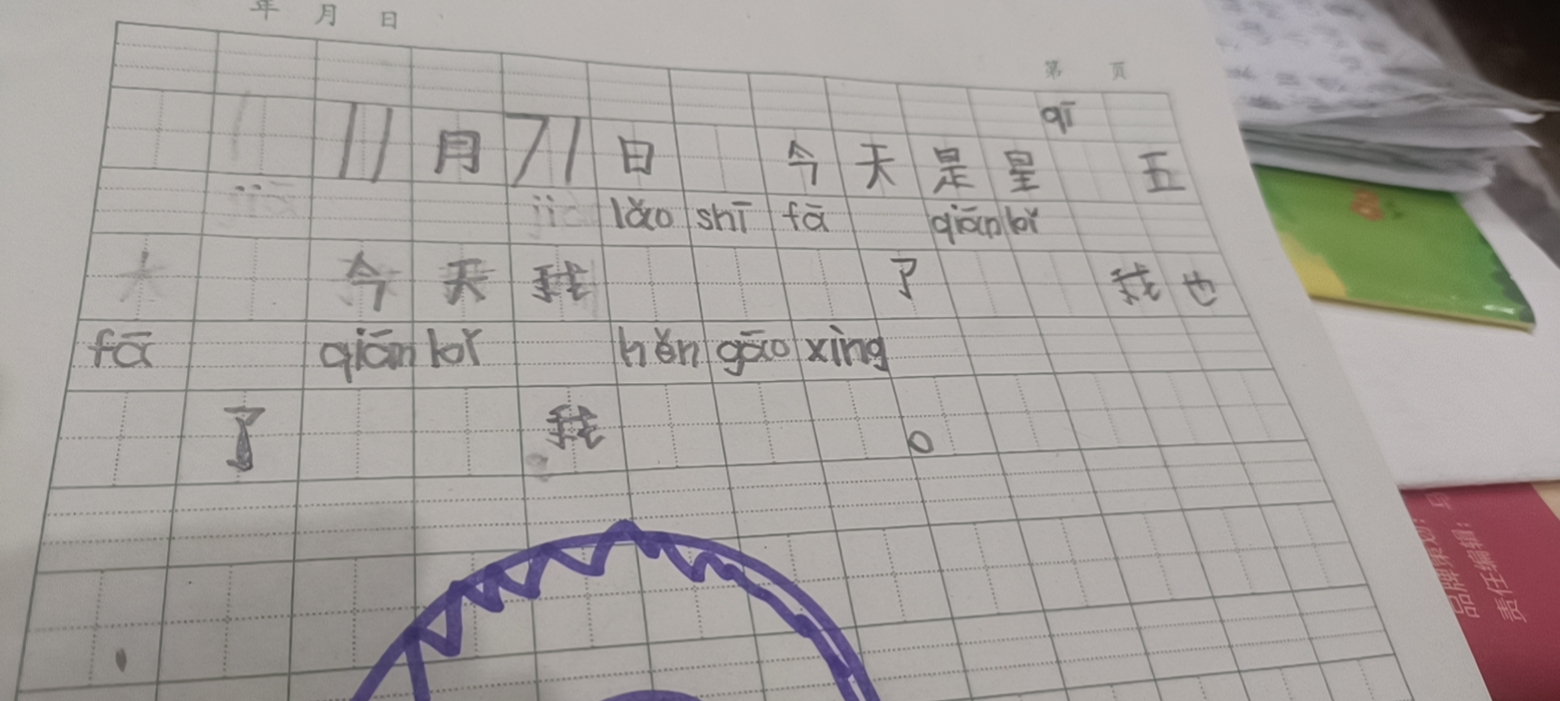 年 月 日
第 页
qī
11月71日 今天是星 五
lǎo shī fā qiān bǐ
今天我 了 我也
fā qiān bǐ hěn gāo xìng
了 我 。
责任编辑: